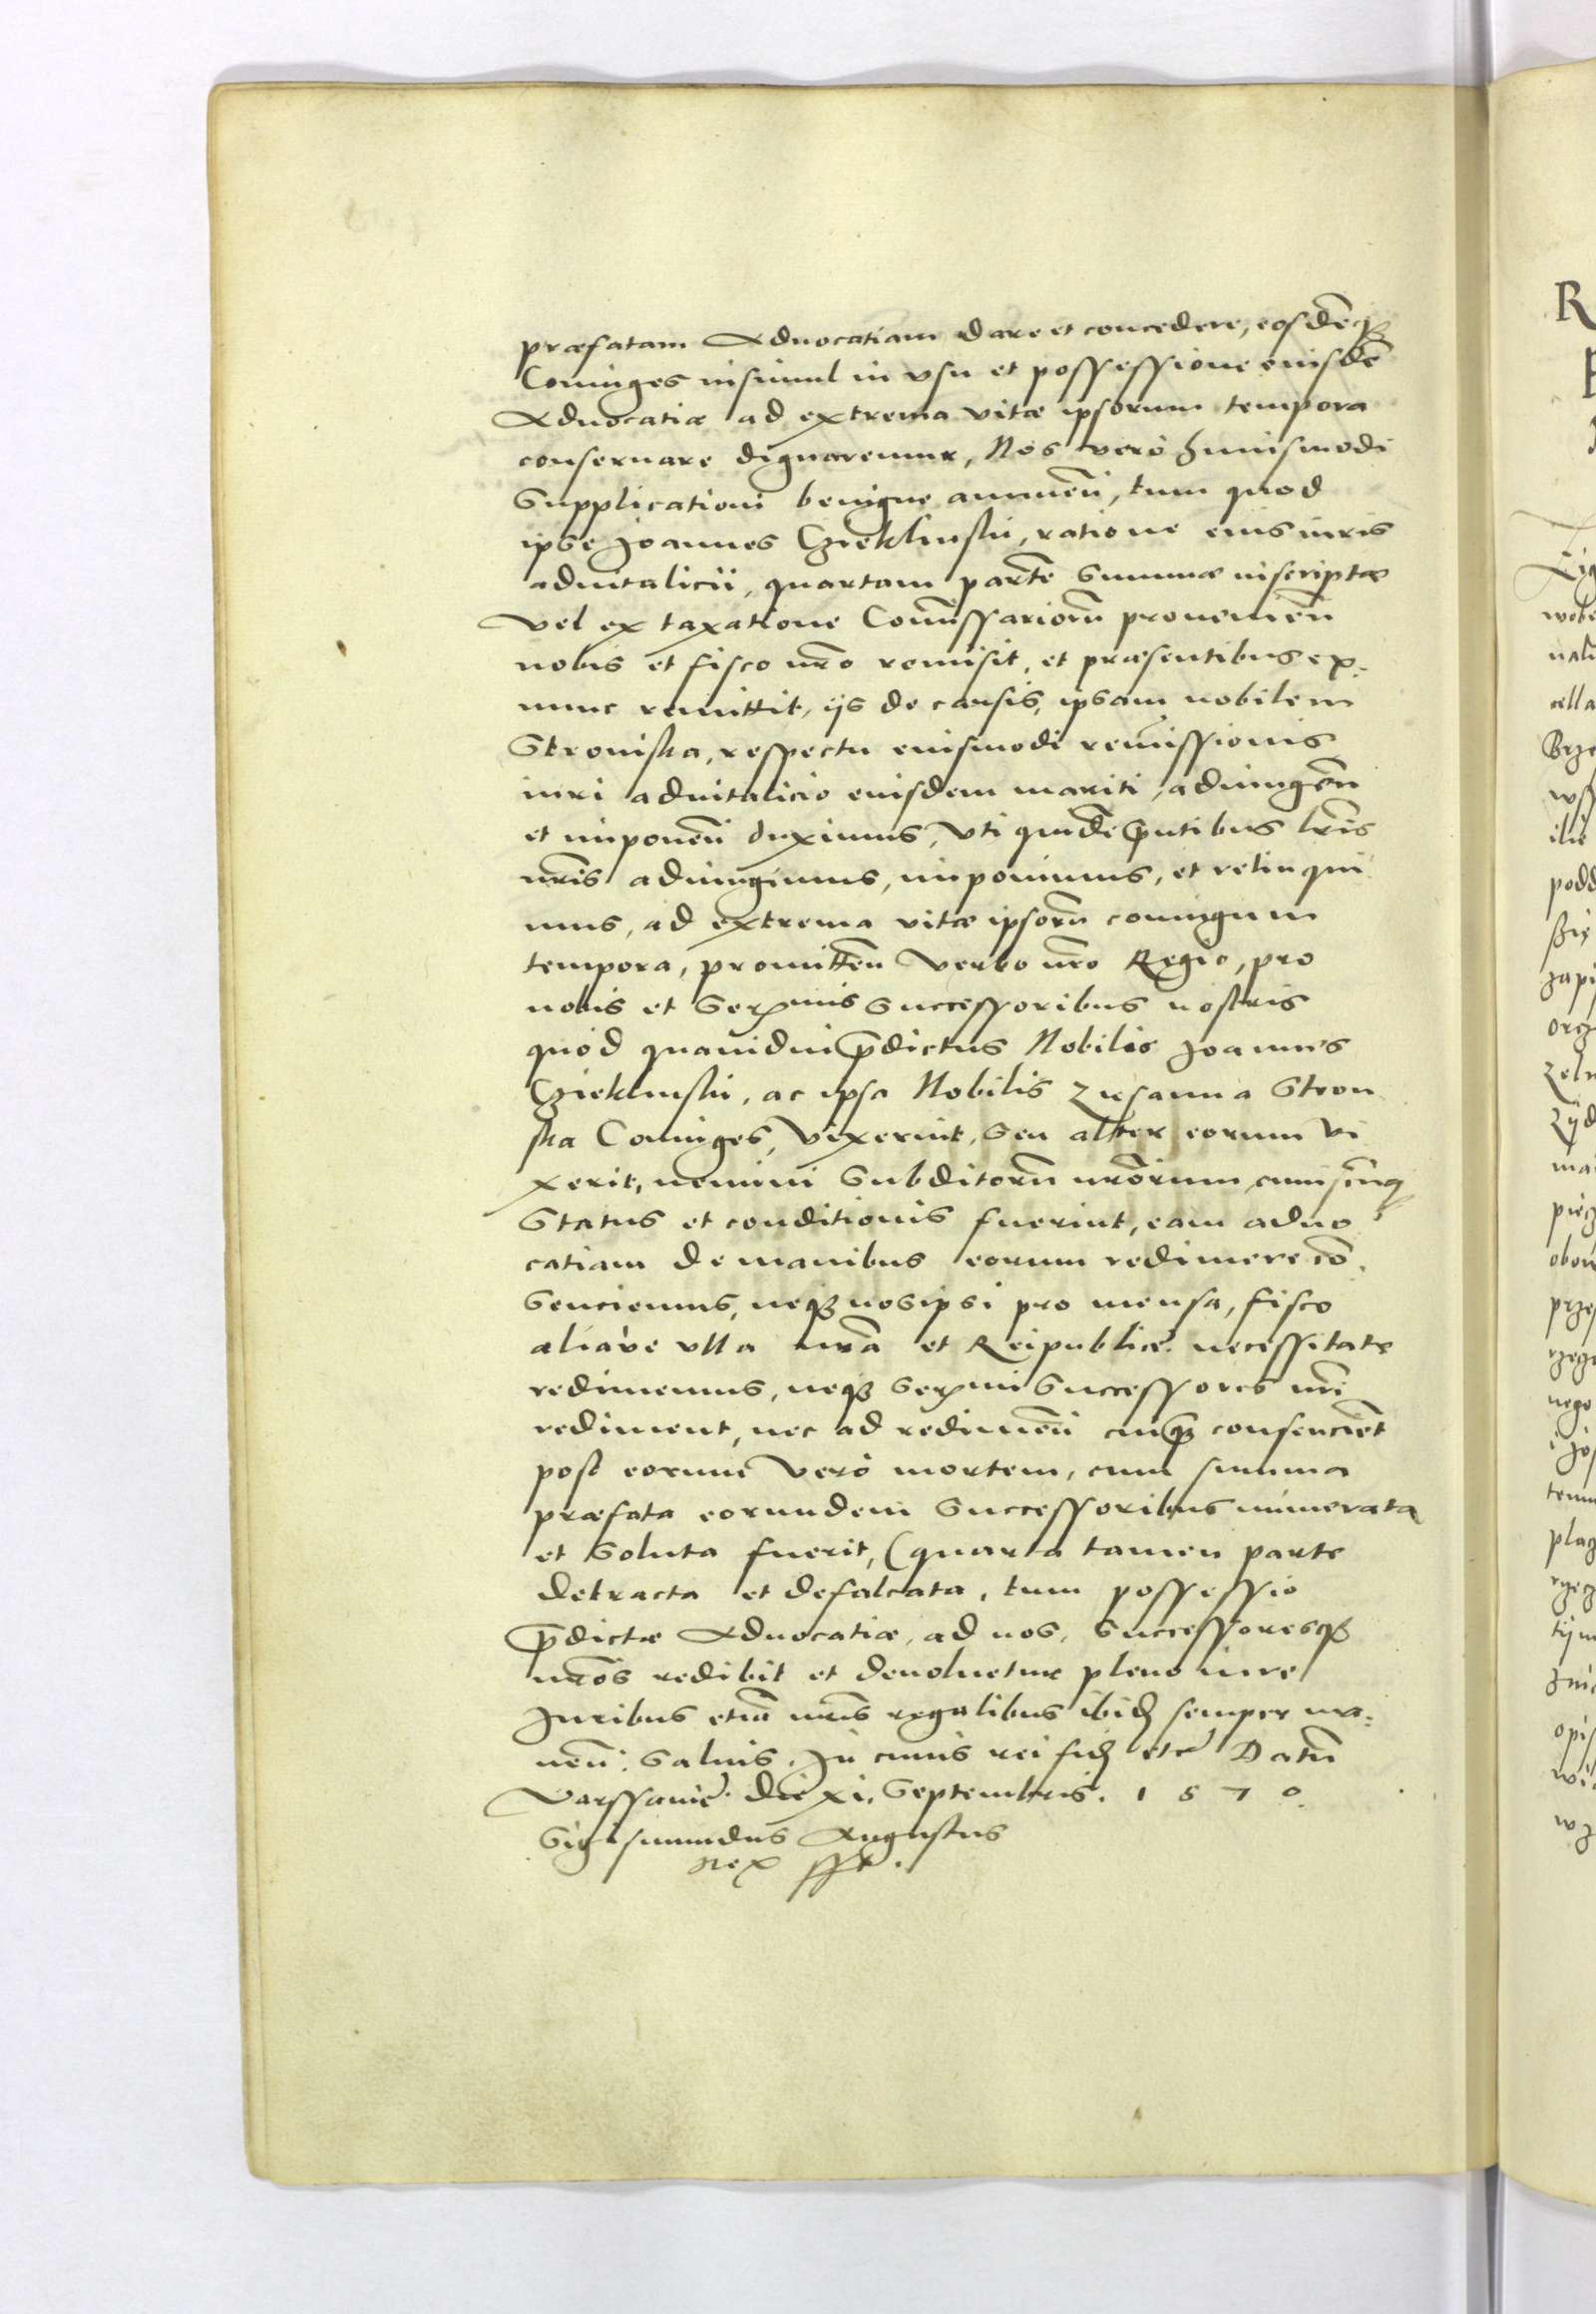 præfatam Aduocatiam dare et concedere, eosdēq3
Coniuges insimul in vsu et possessione eiusdē
Aduocatiæ ad extrema vitæ ipsorum tempora
conseruare dignaremur, Nos verò huiusmodi
Supplicationi benigne annuen̄, tum quod
ipse Joannes Czieklinski, ratione eius iuris
aduitalicii, quartam partē Summæ inscriptæ
vel ex taxatione Com̄issariorū prouenien̄
nobis et fisco nr̄o remisit, et præsentibus ex
nunc remittit, ijs de causis, ipsam nobilem
Stronska, respectu eiusmodi remissionis
iuri aduitalicio eiusdem mariti, adiungen̄
et imponen̄ duximus, Vti quidē p̄ntibus lr̄is
nr̄is adiungimus, imponimus, et relinqui
mus, ad extrema vitæ ipsorū coniugum
tempora, promitten̄ Verbo nr̄o Regio, pro
nobis et Ser̄mis Successoribus nostris
quòd quamdiu p̄dictus Nobilis Joannes
Czieklinski, ac ipsa Nobilis Zusanna Stron
ska Coniuges, Vixerint, Seu alter eorum Vi
xerit, nemini Subditorū nr̄orum cuiuscūq
Status et conditionis fuerint, eam aduo
catiam de manibus eorum redimere cō
Senciemus, neq3 nosipsi pro mensa, fisco
aliàve vlla nr̄a et Reipublicæ necessitate
redimemus, neq3 Ser̄mi Successores nr̄i
rediment, nec ad redimen̄ cuiq3 consencient
post eorum verò mortem, cum summa
præfata eorundem Successoribus numerata
et Soluta fuerit, (quarta tamen parte
detracta et defalcata, tum possessio
p̄dictæ Aduocatiæ, ad nos, Successoresq3
nr̄os redibit et deuoluetur pleno iure
Juribus etiā nr̄is regalibus ibid̄ semper ma=
nen̄: Saluis. In cuius rei fid̄ etc̄ Datū
Varssauiæ die xi. Septembris. 1570.
Sigismundus Augustus
Rex sst.